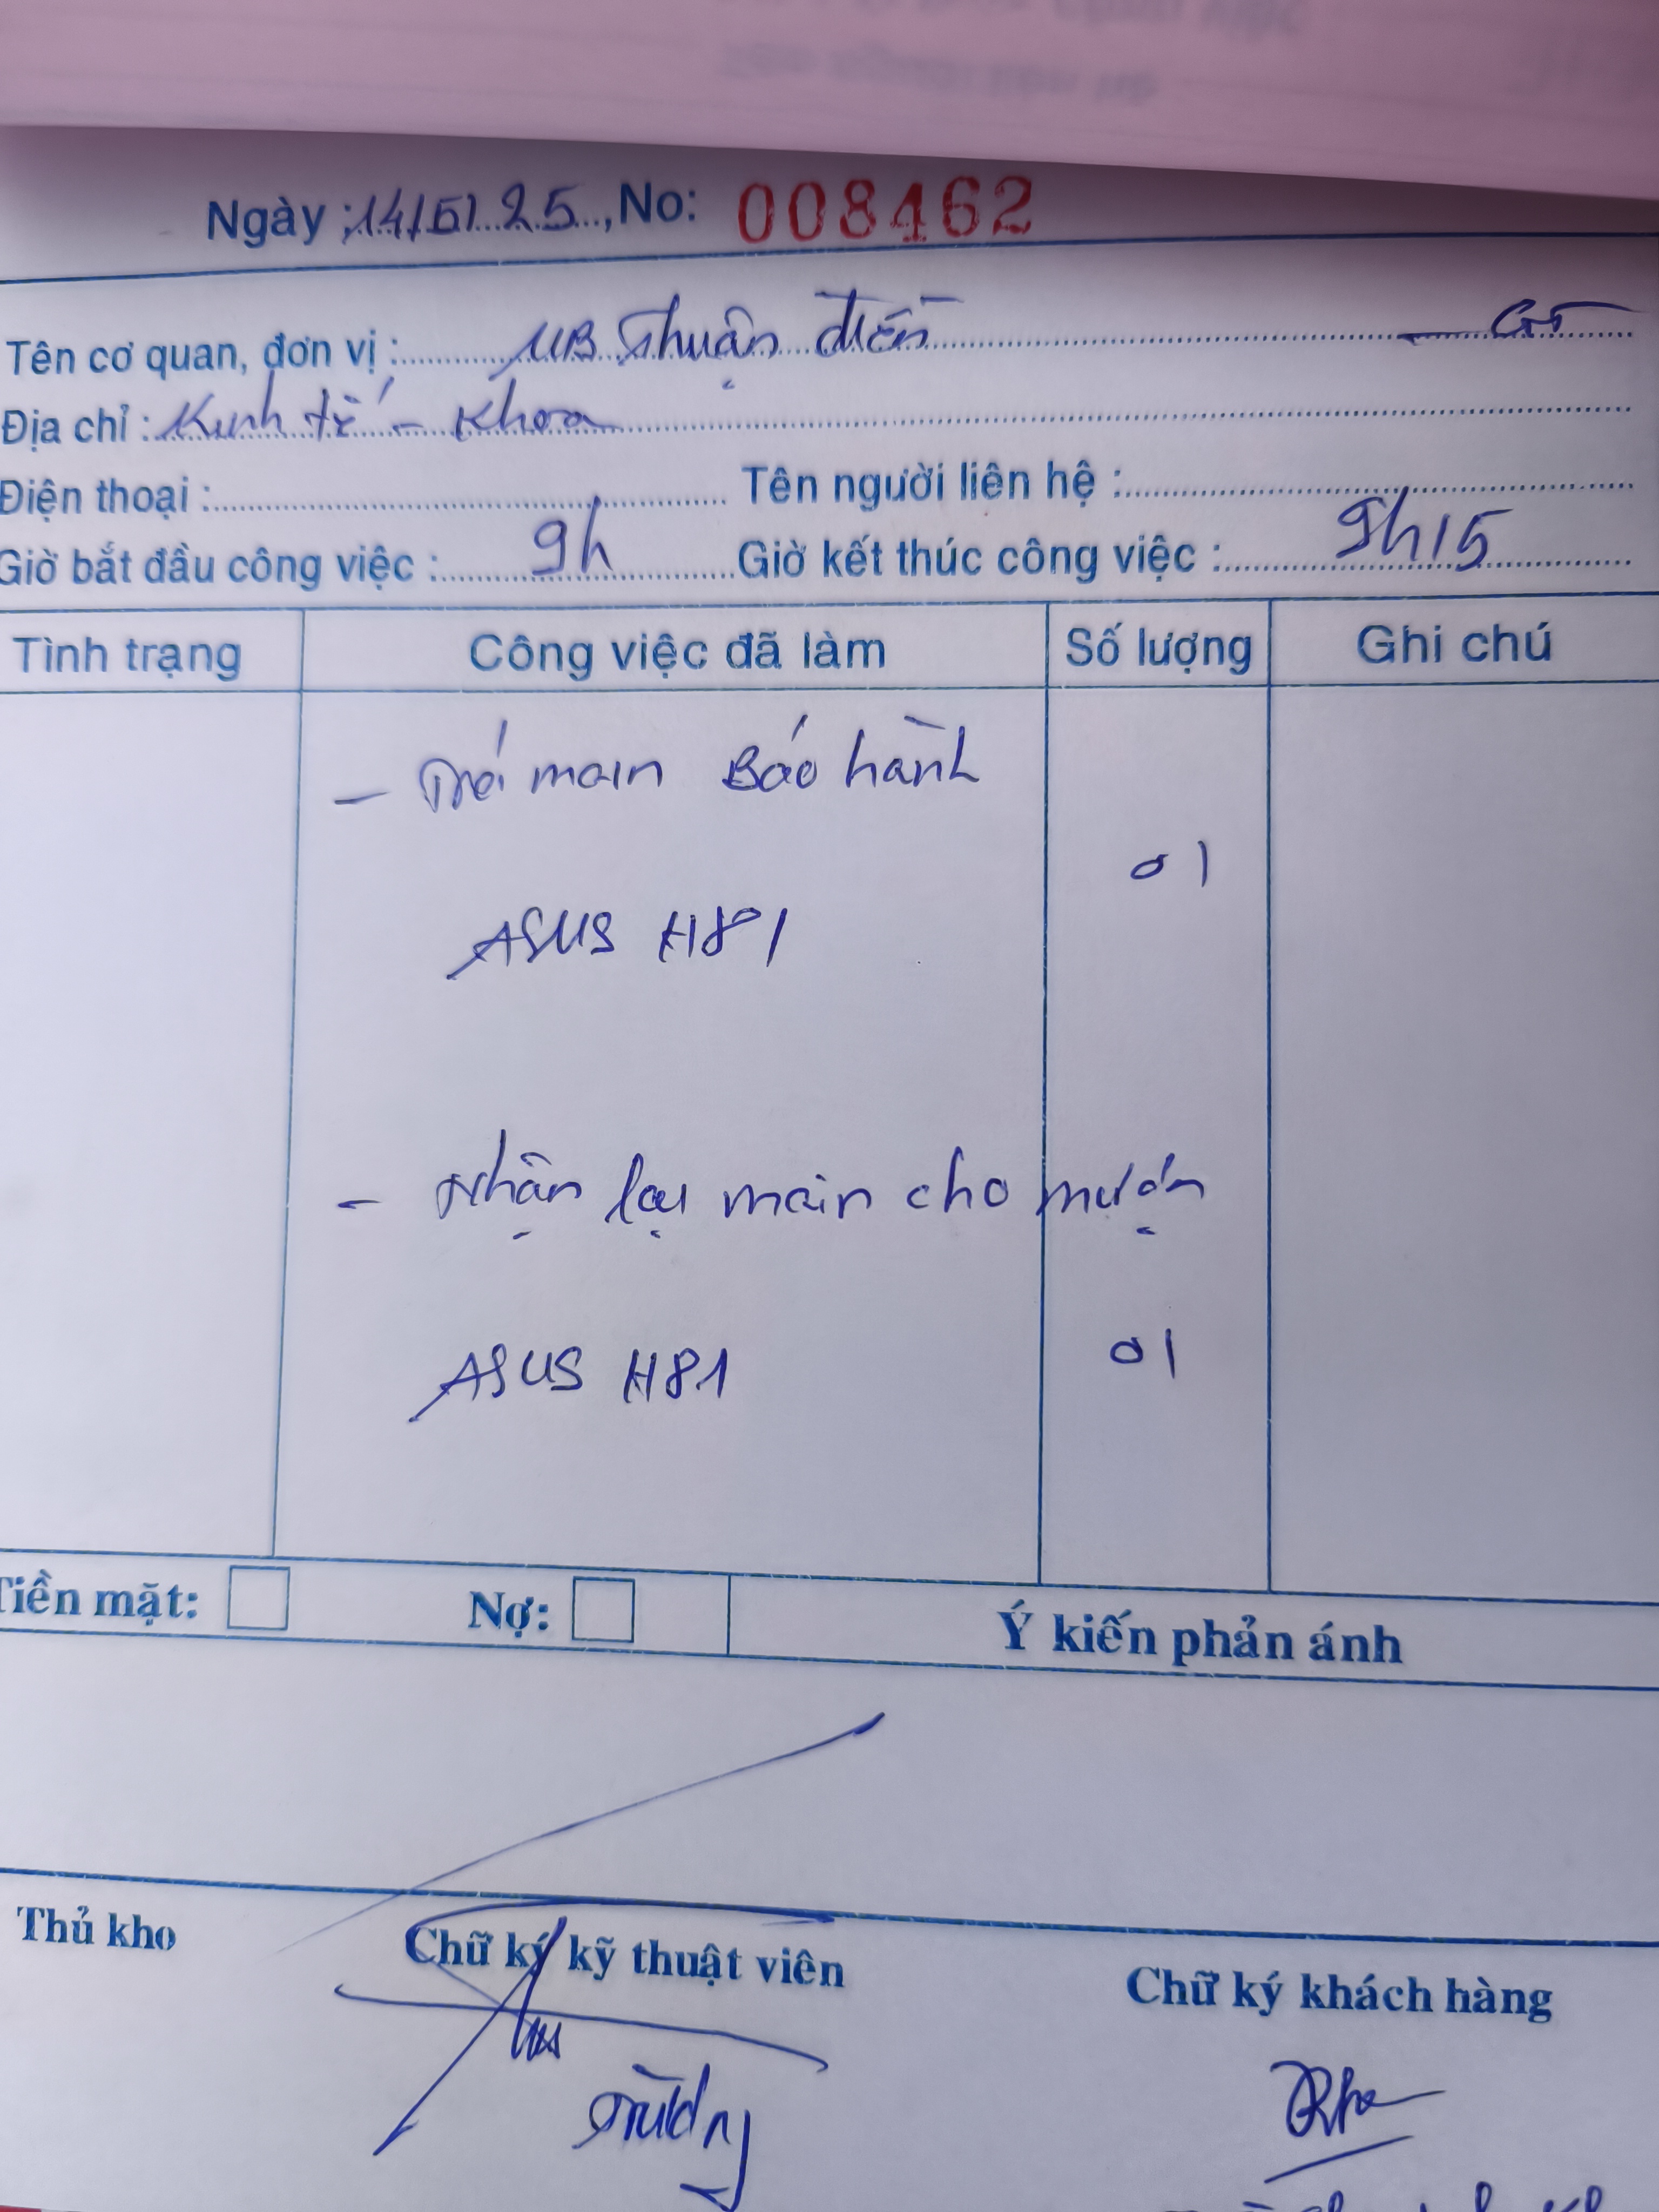 Ngày : 14/5/25, No: 008462
Tên cơ quan, đơn vị : UB Thuận Điền - GT
Địa chỉ : Kinh tế - Khoa
Điện thoại : Tên người liên hệ :
Giờ bắt đầu công việc : 9h Giờ kết thúc công việc : 9h15
Tình trạng Công việc đã làm Số lượng Ghi chú
- Trả main Bảo hành
01
ASUS H81
- Nhận lại main cho mượn
ASUS H81 01
Tiền mặt: Nợ: Ý kiến phản ánh
Thủ kho Chữ ký kỹ thuật viên Chữ ký khách hàng
Trường